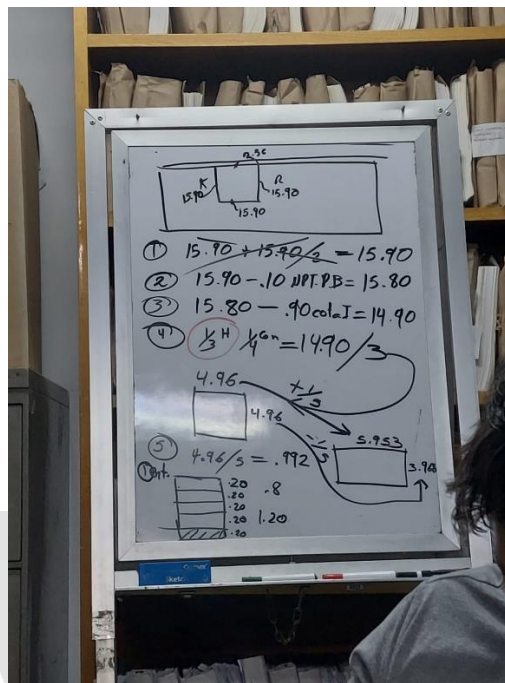 K
R
15.90
15.90
15.90
① 15.90 + 15.90/2 = 15.90
② 15.90 - .10 NPT.P.B = 15.80
③ 15.80 - .90 colaI = 14.90
④ 1/3 H 1/4 Gn = 14.90/3
4.96
4.96
+1/5
-1/5
5.953
⑤ 4.96/5 = .992
.20
.20 .8
.20
.20 1.20
.20